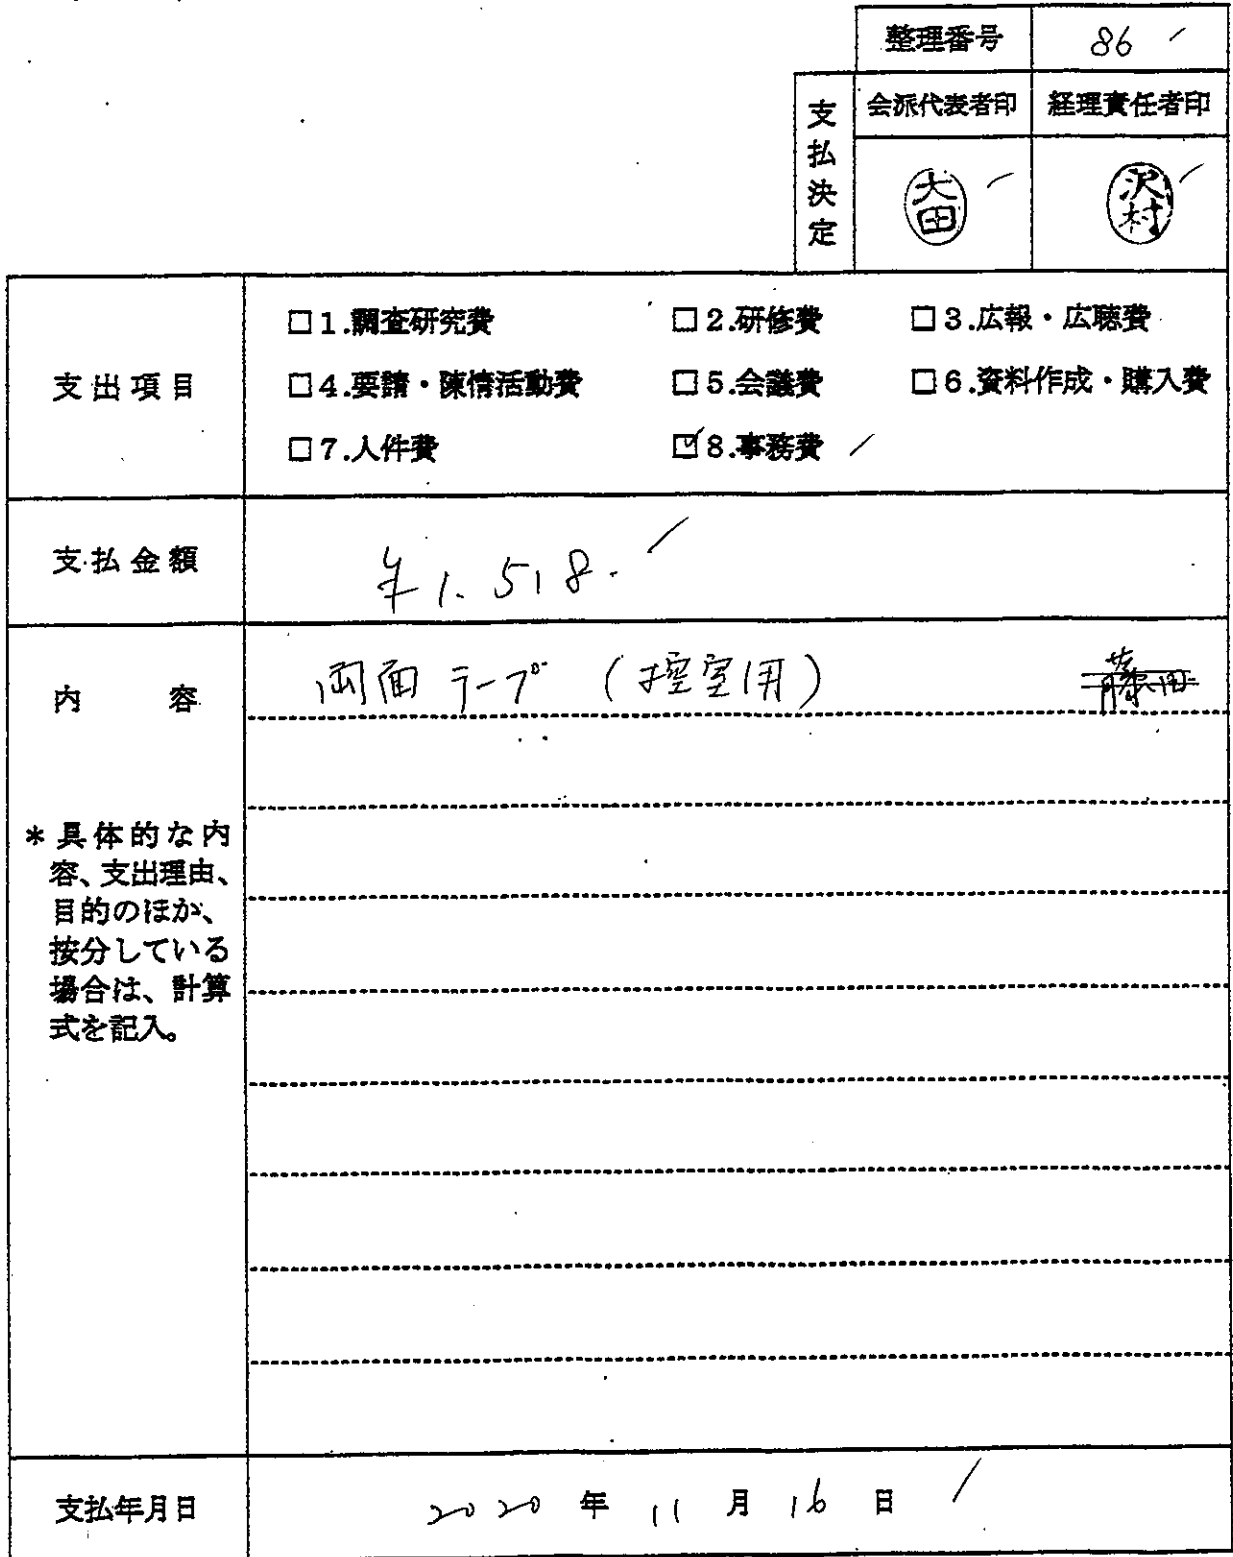 整理番号 86
支払決定 会派代表者印 経理責任者印
大田 沢村
支出項目
□1.調査研究費 □2.研修費 □3.広報・広聴費
□4.要請・陳情活動費 □5.会議費 □6.資料作成・購入費
□7.人件費 ☑8.事務費
支払金額 ¥1.518.
内 容 両面テープ (控室用) 藤田
*具体的な内
容、支出理由、
目的のほか、
按分している
場合は、計算
式を記入。
支払年月日 2020 年 11 月 16 日